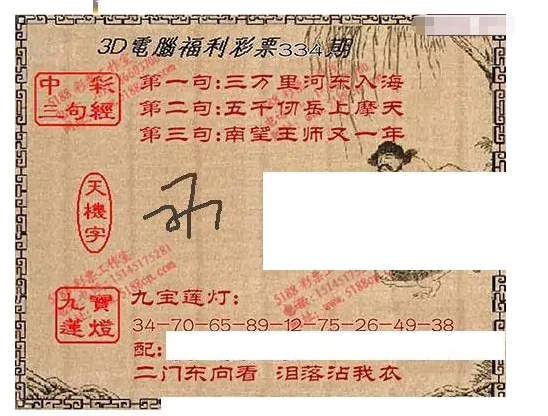 3D電腦福利彩票334期
中彩
三句經
第一句:三万里河东入海
第二句:五千仞岳上摩天
第三句:南望王师又一年
天機字
5188 彩票工作室
电话:15145175281
www.5188cp.com
九寶
蓮燈
九宝莲灯:
34-70-65-89-12-75-26-49-38
配:
二门东向看 泪落沾我衣